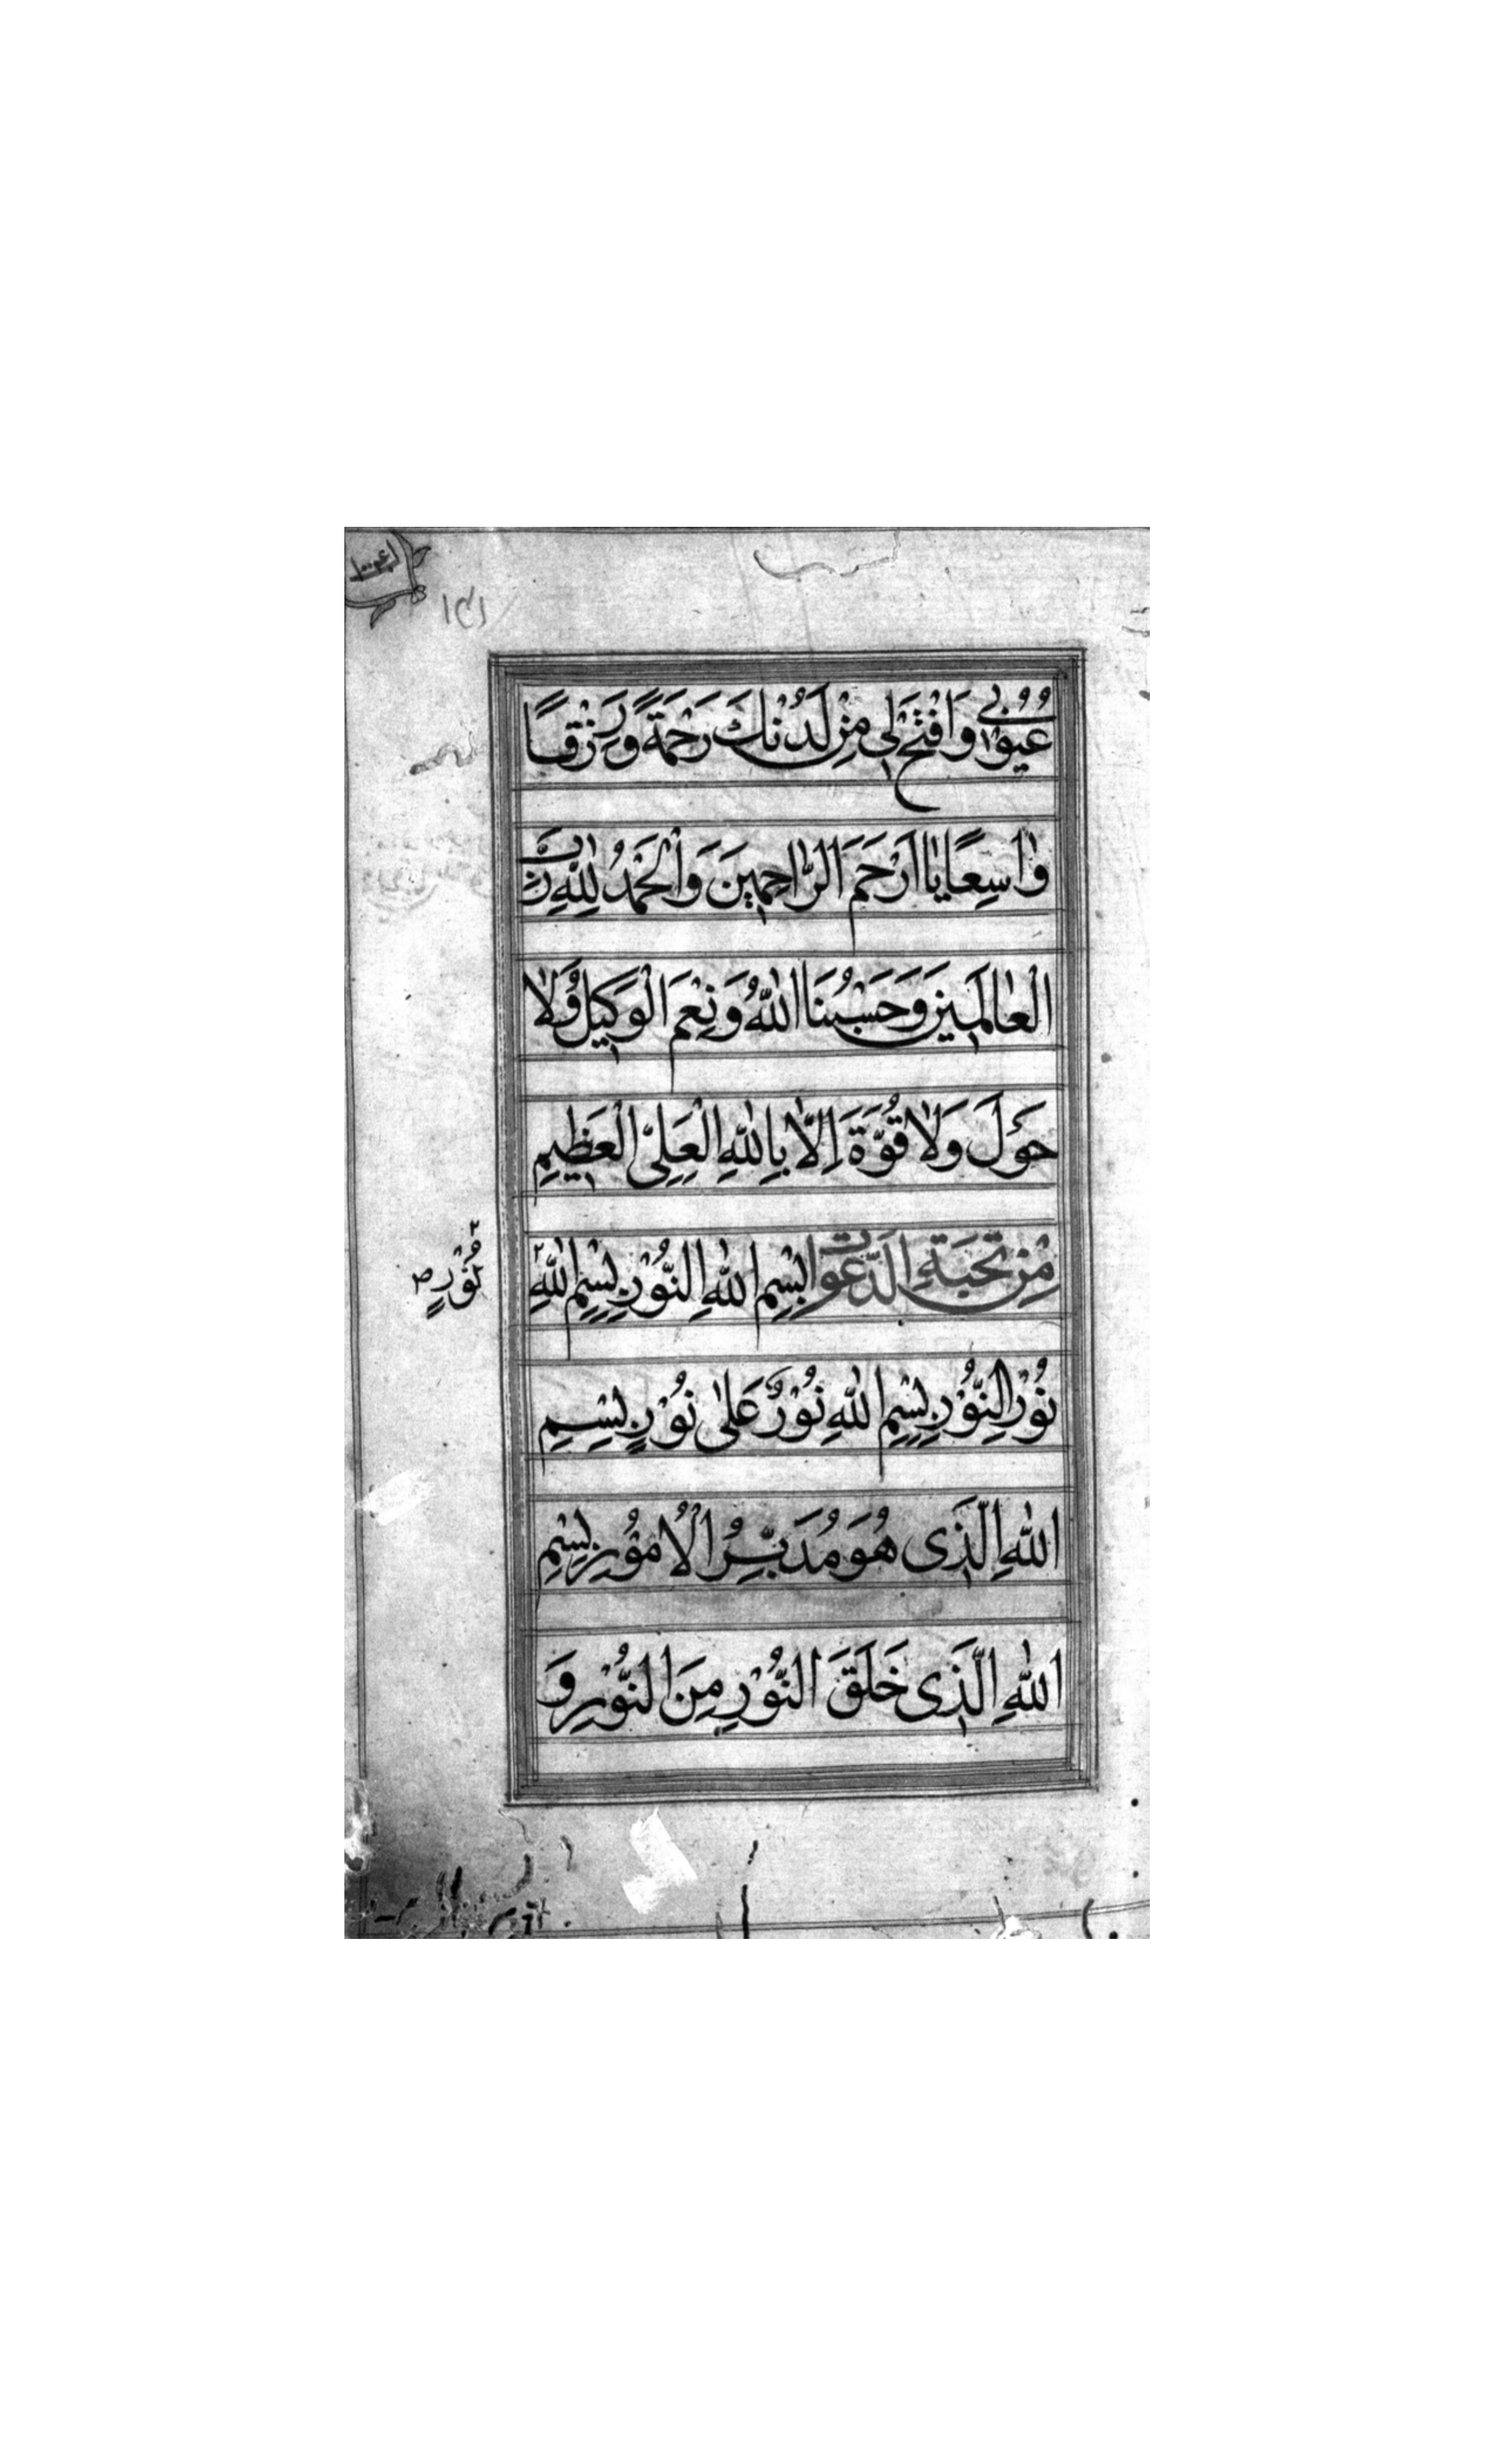 ١٤١
عُيُوْبِيْ وَافْتَحْ لِيْ مِنْ لَدُنْكَ رَحْمَةً وَرِزْقًا
وٰاسِعًا يٰا اَرْحَمَ الرّٰاحِمِيْنَ وَالْحَمْدُ لِلّٰهِ رَبِّ
الْعٰالَمِيْنَ وَحَسْبُنَا اللّٰهُ وَنِعْمَ الْوَكِيْلُ وَلٰا
حَوْلَ وَلٰا قُوَّةَ اِلّٰا بِاللّٰهِ الْعَلِىِّ الْعَظِيْمِ
مِنْ نُخْبَةِ الدَّعَوٰاتِ بِسْمِ اللّٰهِ النُّوْرِ بِسْمِ اللّٰهِ
نُوْرٍ ص
نُوْرِ النُّوْرِ بِسْمِ اللّٰهِ نُوْرٌ عَلٰى نُوْرٍ بِسْمِ
اللّٰهِ الَّذِى هُوَ مُدَبِّرُ الْاُمُوْرِ بِسْمِ
اللّٰهِ الَّذِى خَلَقَ النُّوْرِ مِنَ النُّوْرِ وَ